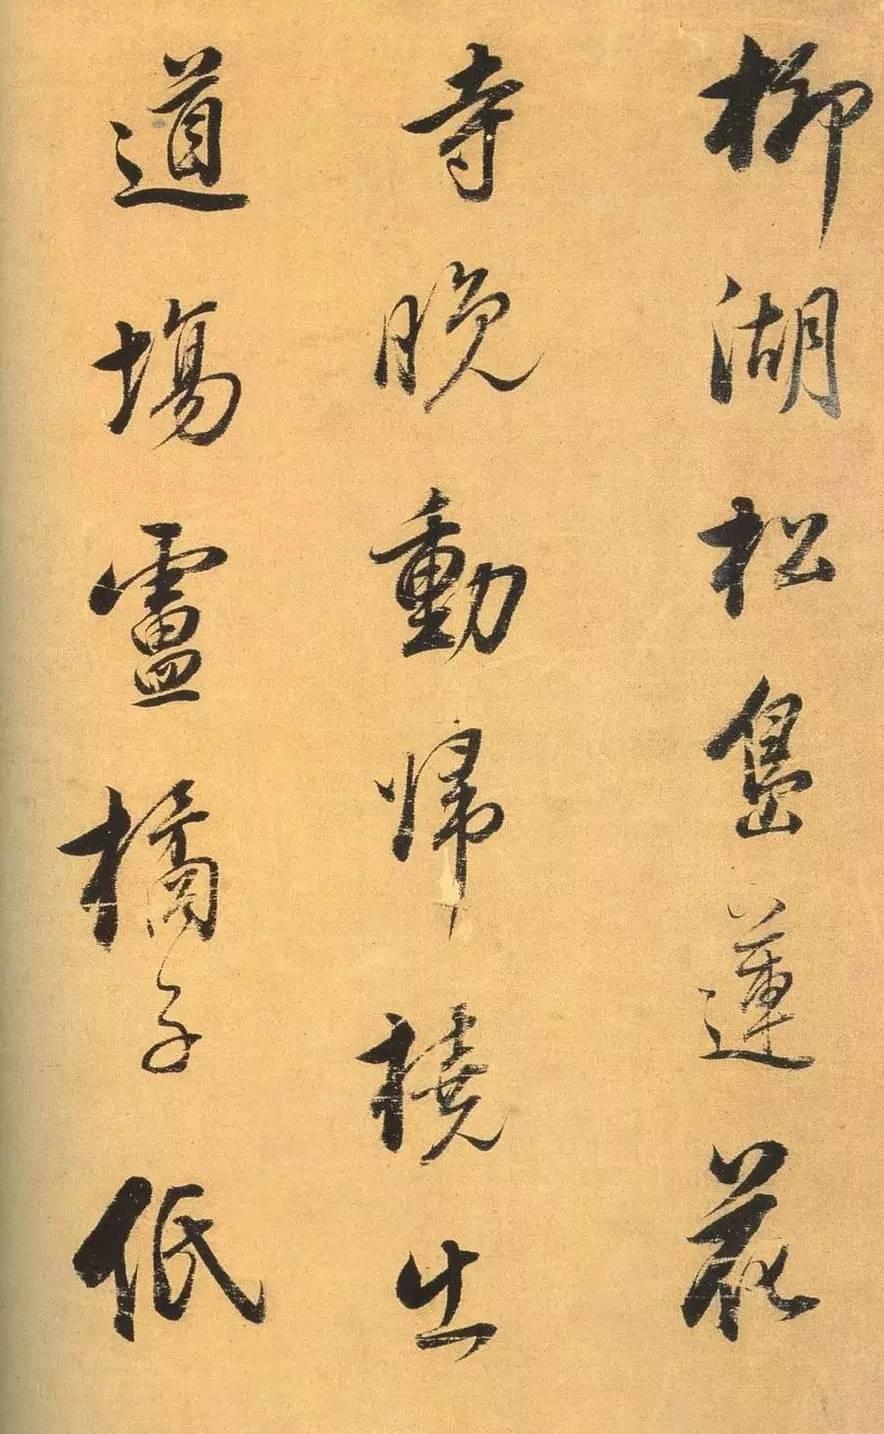 柳湖松島蓮花
寺晚動歸橈出
道場盧橘子低